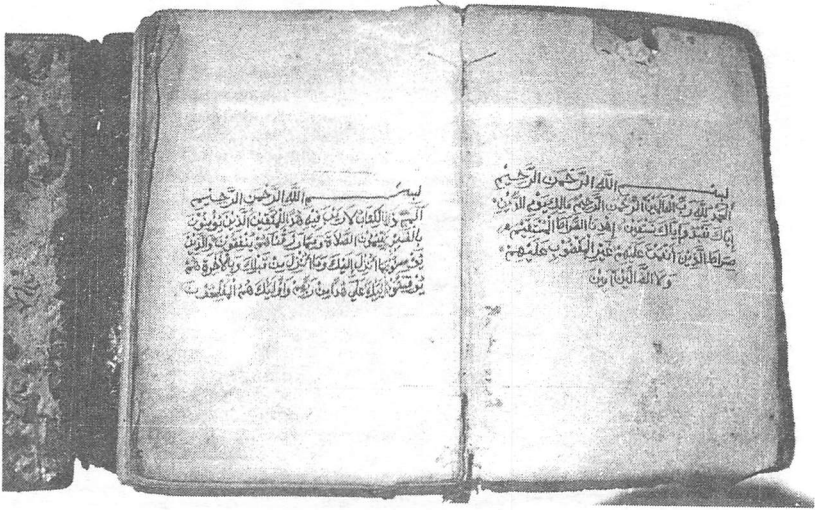 بسم الله الرحمن الرحيم
الحمد لله رب العالمين الرحمن الرحيم مالك يوم الدين
إياك نعبد وإياك نستعين اهدنا الصراط المستقيم
صراط الذين أنعمت عليهم غير المغضوب عليهم
ولا الضالين آمين
بسم الله الرحمن الرحيم
الم ذلك الكتاب لا ريب فيه هدى للمتقين الذين يؤمنون
بالغيب ويقيمون الصلاة ومما رزقناهم ينفقون والذين
يؤمنون بما أنزل إليك وما أنزل من قبلك وبالآخرة هم
يوقنون أولئك على هدى من ربهم وأولئك هم المفلحون